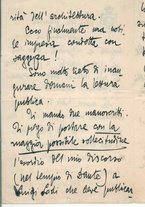 rità dell'architettura.
Ecco finalmente una cosa,
le impresa condotta con
saggezza!
Sono molto lieto di inau-
gurare domani la lettura
pubblica.
Vi mando due manoscritti.
Vi prego di portare con la
maggior possibile sollecitudine
l'esordio del mio discorso
nel tempio di Dante) a
Luigi Lodi che deve pubblicar